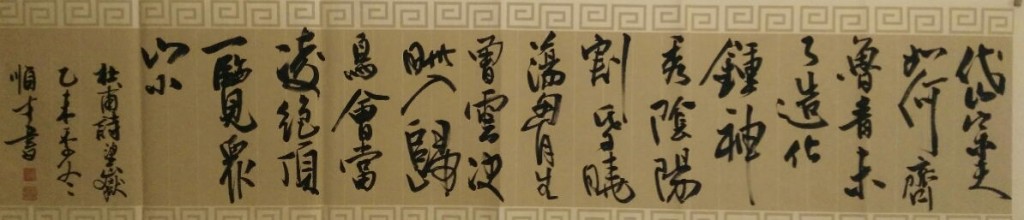 岱宗夫
如何齊
魯青未
了造化
鍾神
秀陰陽
割昏曉
蕩胸生
曾雲決
眥入歸
鳥會當
凌絕頂
一覽眾
山小
杜甫詩望嶽
乙未冬
順才書